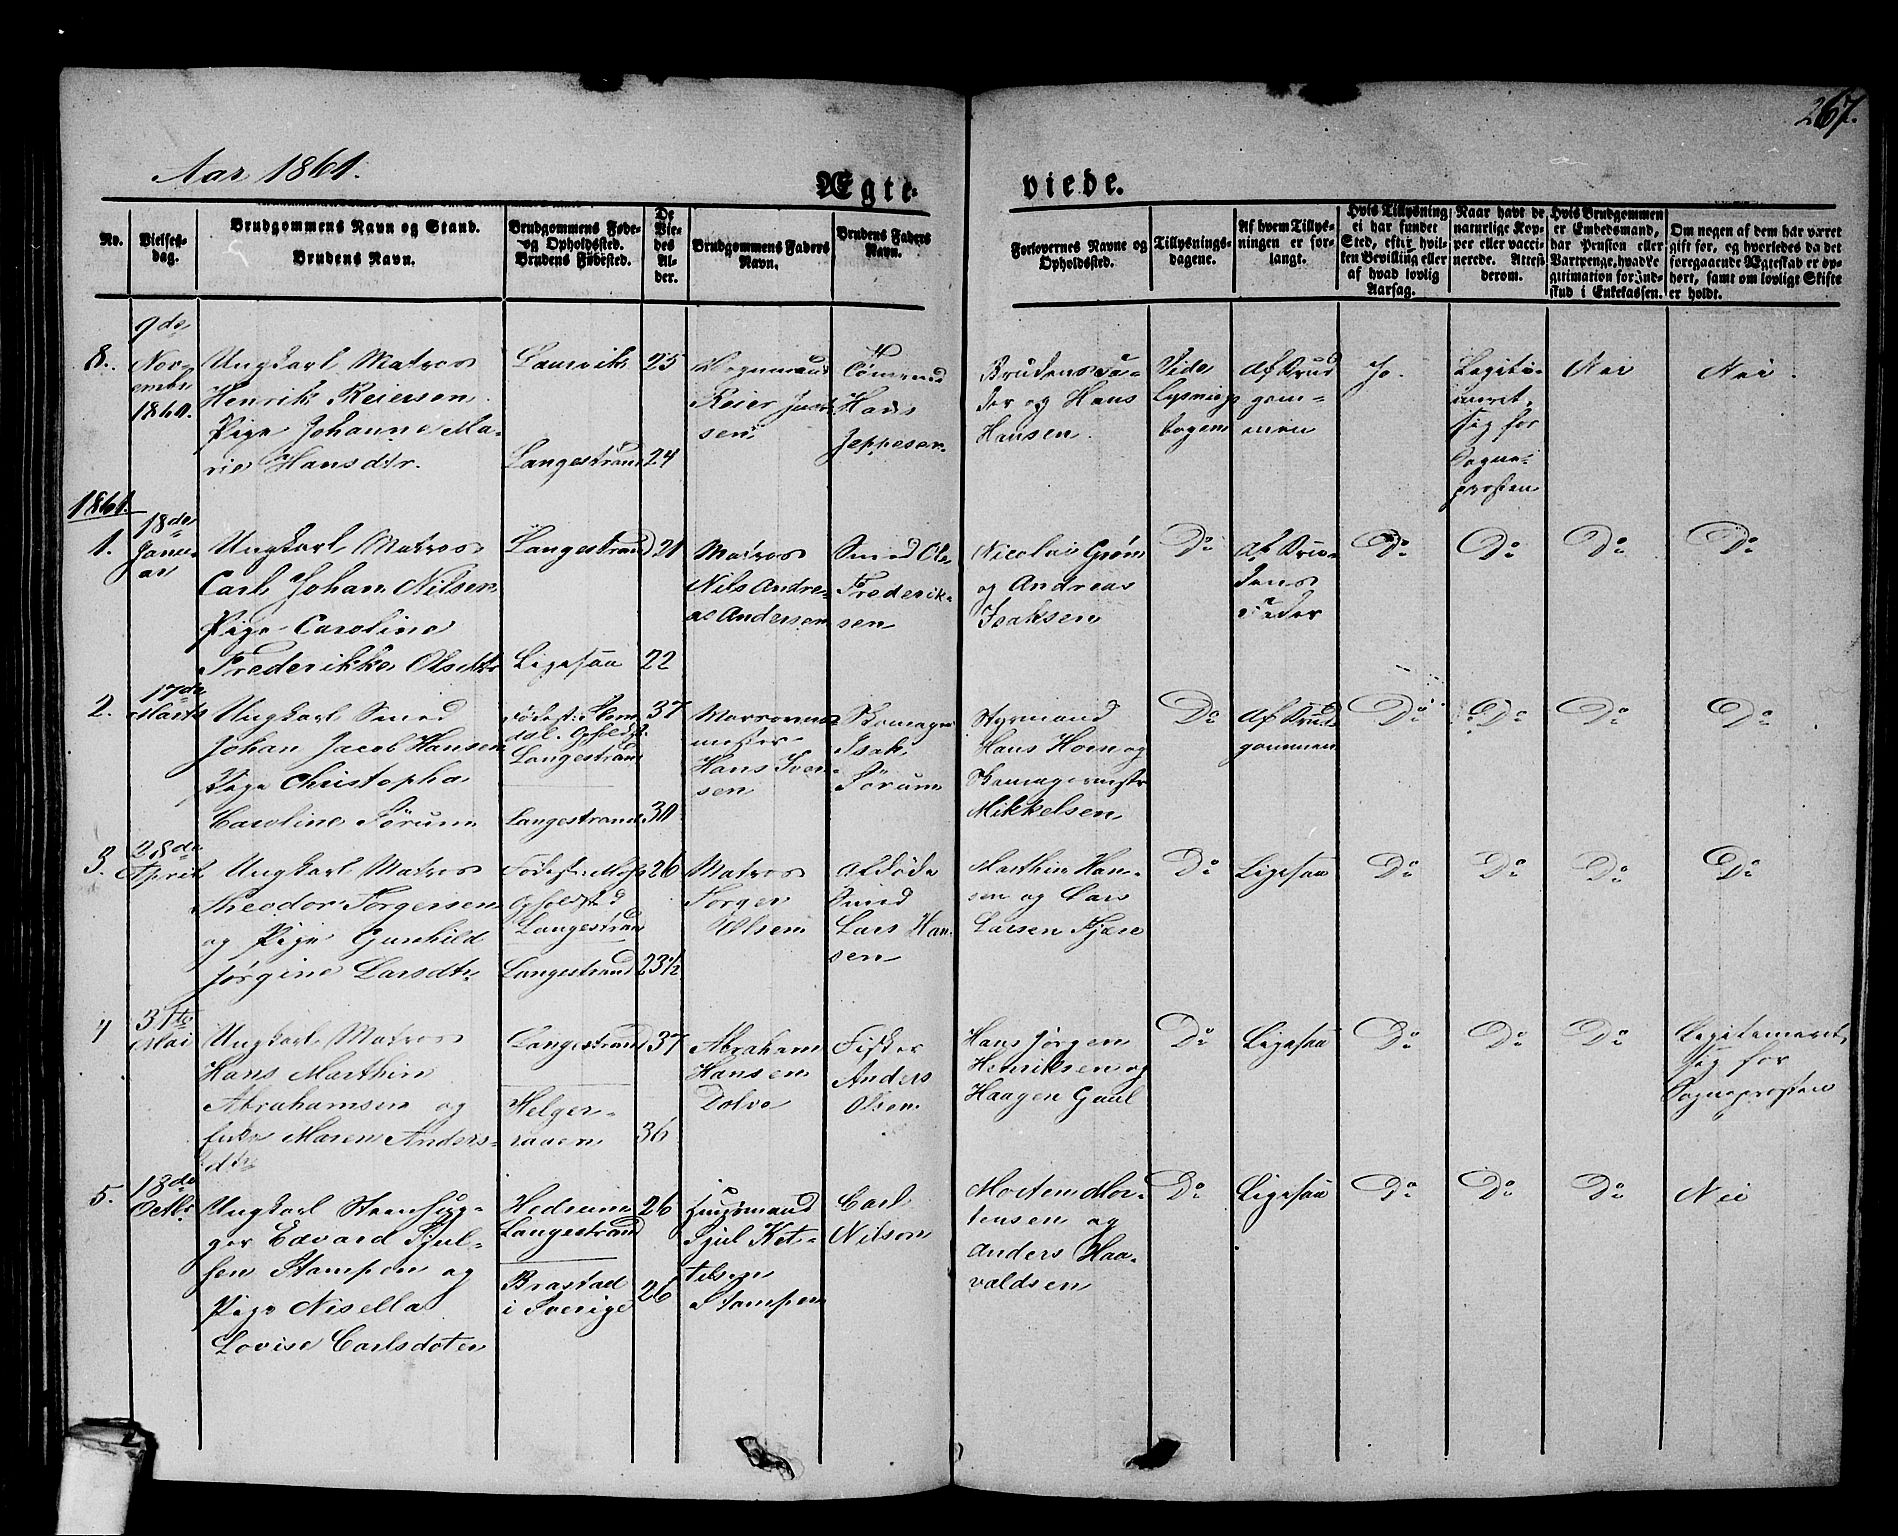 267.
Aar 1861.
Ægte-
viede.
No.
Vielses-
dag.
Brudgommens Navn og Stand.
Brudens Navn.
Brudgommens Føde-
og Opholdssted.
Brudens Fødested.
De
Vie-
des
Al-
der.
Brudgommens Faders
Navn.
Brudens Faders
Navn.
Forlovernes Navne og
Opholdssted.
Tillysnings-
dagene.
Af hvem Tillys-
ningen er for-
langt.
Hvis Tillysning
ei har fundet
Sted, efter hvil-
ken Bevilling eller
af hvad lovlig
Aarsag.
Naar havt de
naturlige Kop-
per eller vacci-
nerede. Attest
derom.
Hvis Brudgommen
er Embedsmand,
har Pension eller
Vartpenge, hvad Le-
gitimation for Ind-
skud i Enkekassen.
Om nogen af dem har været
gift før, og hvorledes da det
foregaaende Ægteskab er op-
hørt, samt om lovligt Skifte
er holdt.
8.
9de
Nov-
ember
1860.
Ungkarl Matros
Henrik Reiersen
Pige Johanne Ma-
rie Hansdtr.
Laurvik
Langestrand
25
24
Reier
sen
Tømmermd
Hans
Jeppesen
Brudens Fa-
der og Hans
Hansen.
Vide
Lysnings
bogen
Af Brud
gom-
men
Ja.
Legiti-
meret
sig for
Sogne-
prosten
Nei
Nei.
1861.
1.
18de
Janu-
ar
Ungkarl Matros
Carl Johan Nilsen
Pige Caroline
Frederikke Olsdtr
Langestrand
Ligesaa
21
22
Matros
Nils Andre-
as Andersen
Smed Ole
Frederik-
sen
Nicolai Grøm
og Andreas
Isaksen
Do
Af Bru-
dens
Fader
Do
Do
Do
Do
2.
17de
Marts
Ungkarl Smed
Johan Jacob Hansen
Pige Christopha
Caroline Sørum
Langestrand
Langestrand
37
30
mester
Hans Iver-
sen
Skomager
Isak
Sørum
Styrmand
Hans Hoen og
Skomagermestr
Mikkelsen
Do
Af Brud
gommen
Do
Do
Do
Do
3.
28de
April
Ungkarl Matros
Theodor Torgersen
og Pige Gunhild
Jørgine Larsdtr
Fødest: Moss
Opholdsted
Langestrand
Langestrand
26
23½
Matros
Torger
Olsen
Afdøde
Smed
Lars Han-
sen
Marthin Han-
sen og Lars
Larsen Fjære
Do
Ligesaa
Do
Do
Do
Do
4
31te
Mai
Ungkarl Matros
Hans Marthin
Abrahamsen og
Enke Maren Anders-
dtr
Langestrand
Helger-
raaen
37
36
Abraham
Hansen
Dolve
Fisker
Anders
Olsen
Hans Jørgen
Henriksen og
Haagen Gaul
Do
Ligesaa
Do
Do
Do
Legitimeret
sig for
Sogneprosten
5.
18de
Octbr
Ungkarl Steenhug-
ger Edvard Sjul-
sen Stampen og
Pige Nisella
Lovise Carlsdoter
Hedrum
Langestrand
Brastad
i Sverige
26
26
Huusmand
Sjul Ket-
telsen
Stampen
Carl
Nilson
Morten Mor-
tensen og
Anders Haa-
valdsen
Do
Ligesaa
Do
Do
Do
Nei